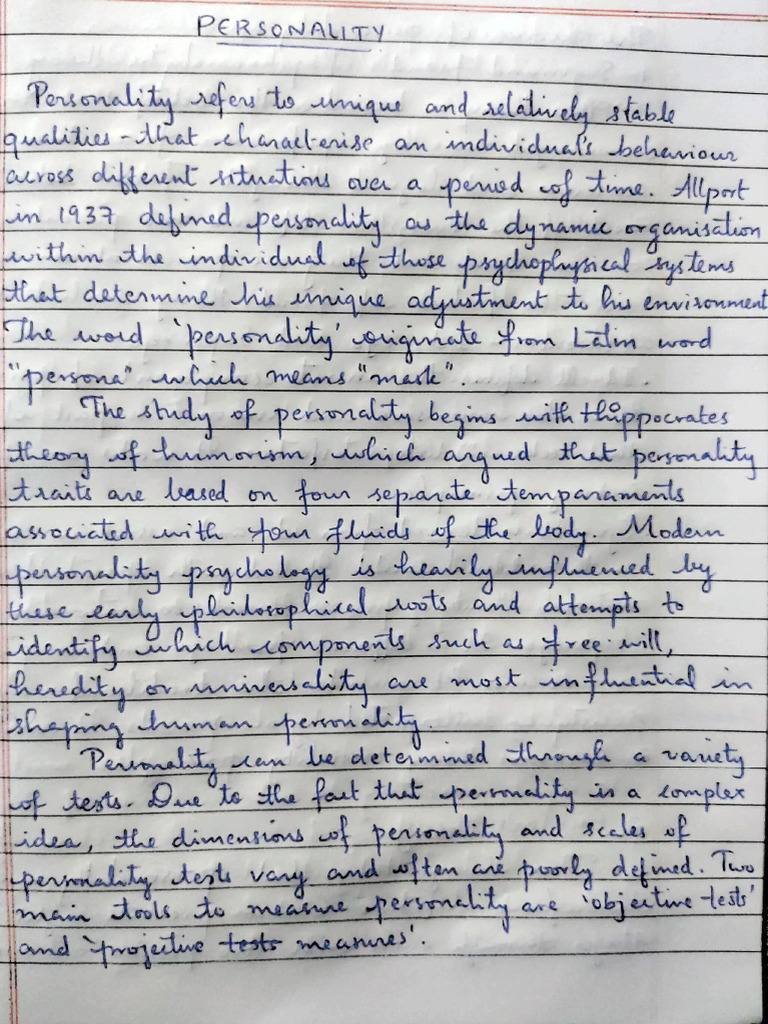 PERSONALITY
Personality refers to unique and relatively stable
qualities that characterise an individual's behaviour
across different situations over a period of time. Allport
in 1937 defined personality as the dynamic organisation
within the individual of those psychophysical systems
that determine his unique adjustment to his environment
The word 'personality' originate from Latin word
"persona" which means "mask".
The study of personality begins with Hippocrates
theory of humorism, which argued that personality
traits are based on four separate temparaments
associated with four fluids of the body. Modern
personality psychology is heavily influenced by
these early philosophical roots and attempts to
identify which components such as free will,
heredity or universality are most influential in
shaping human personality.
Personality can be determined through a variety
of tests. Due to the fact that personality is a complex
idea, the dimensions of personality and scales of
personality tests vary and often are poorly defined. Two
main tools to measure personality are 'objective tests'
and 'projective tests measures'.